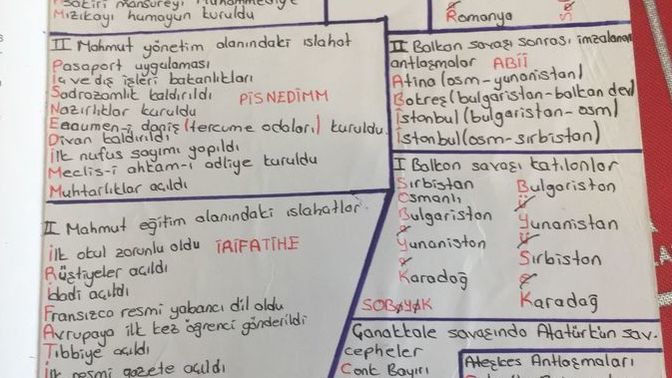 Mızıkayı humayun kuruldu
Romanya
II Mahmut yönetim alanındaki ıslahat
Pasaport uygulaması
İç ve dış işleri bakanlıkları
Sadrazamlık kaldırıldı
PİSNEDİMM
Nazırlıklar kuruldu
Encumen-i daniş (tercume odaları) kuruldu.
Divan kaldırıldı
İlk nufus sayımı yapıldı
Meclis-i ahkam-ı adliye kuruldu
Muhtarlıklar açıldı
II Mahmut eğitim alanındaki ıslahatlar
İlk okul zorunlu oldu
İRİFATİHE
Rüştiyeler açıldı
İdadi açıldı
Fransızca resmi yabancı dil oldu
Avrupaya ilk kez öğrenci gönderildi
Tıbbiye açıldı
İlk resmi gazete açıldı
II Balkan savaşı sonrası imzalanan
antlaşmalar ABİİ
Atina (osm-yunanistan)
Bükreş (bulgaristan-balkan dev)
İstanbul (bulgaristan-osm)
İstanbul (osm-sırbistan)
I Balkan savaşı katılanlar
Sırbistan
Osmanlı
Bulgaristan
Yunanistan
Karadağ
SOBYK
Bulgaristan
Yunanistan
Sırbistan
Karadağ
Çanakkale savaşında Atatürkün sav.
cepheler
Conk Bayırı
Ateşkes Antlaşmaları